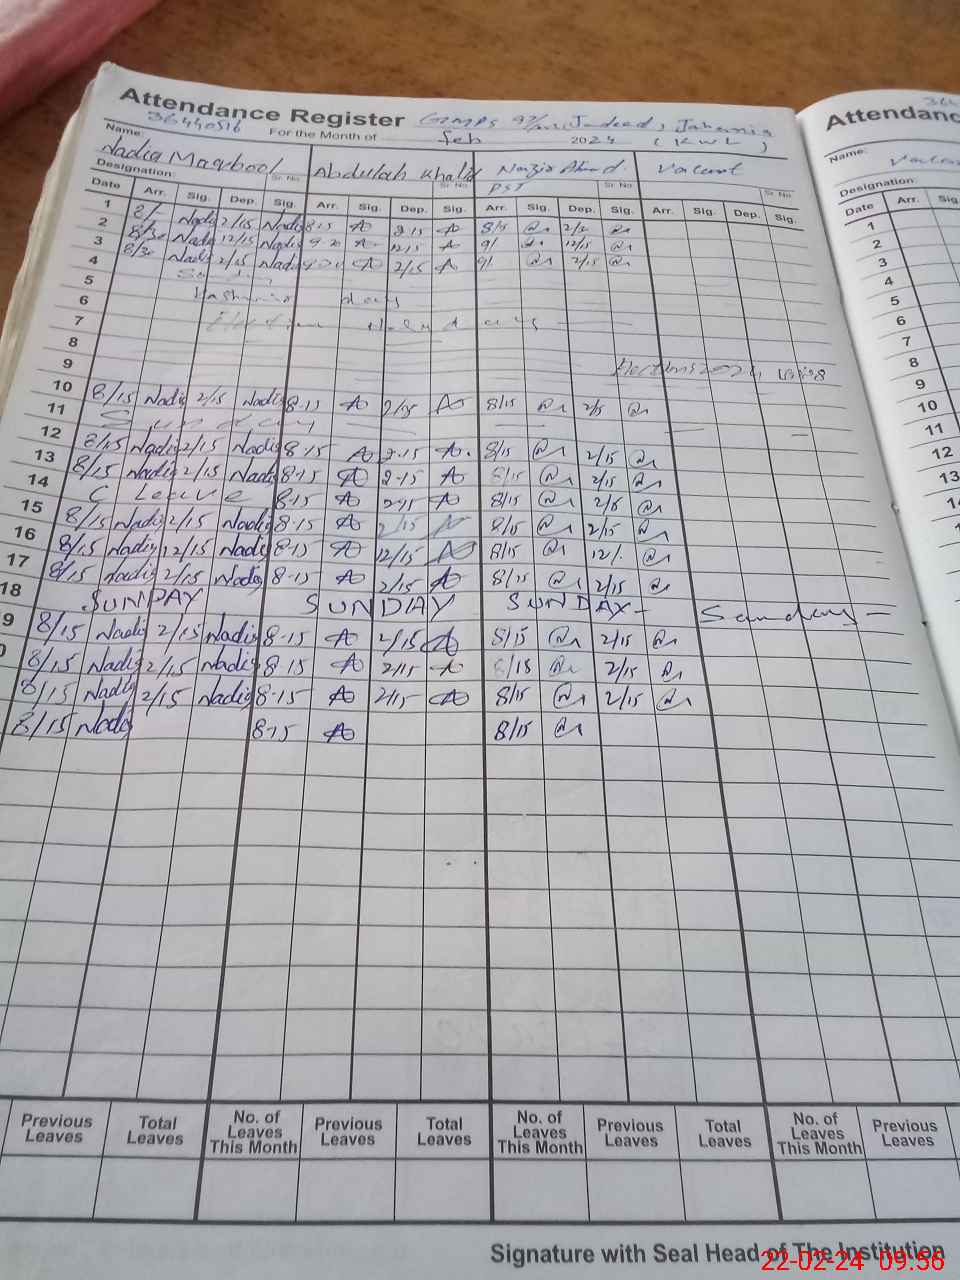 Attendance Register
36440516
For the Month of Feb 2024
Attendanc
Name:
Nadia Maqbool Abdullah Khalid Nazia Ahmad. Vacant
Sr. No. Sr. No. PST Sr. No. Sr. No.
Name:
Designation:
Designation:
Date Arr. Sig. Dep. Sig. Arr. Sig. Dep. Sig. Arr. Sig. Dep. Sig. Arr. Sig. Dep. Sig.
Date Arr. Sig
1 8/- Nadia 2/15 Nadia 8-15 2-15 8/15
2 8/30 Nadia 12/15 Nadia 12/15 9/ 12/15
3 8/30 Nadia 2/15 Nadia 2/15 9/ 2/15
4
5 Kashmir day
6
7
8
9 Elections 2024
10 8/15 Nadia 2/15 Nadia 8-15 2/15 8/15 2/15
11 Sunday
12 8/15 Nadia 2/15 Nadia 8-15 2-15 8/15 2/15
13 8/15 Nadia 2/15 Nadia 8-15 2-15 8/15 2/15
14 C Leave 8-15 2-15 8/15 2/15
15 8/15 Nadia 2/15 Nadia 8-15 2/15 8/15 2/15
16 8/15 Nadia 12/15 Nadia 8-15 12/15 8/15 12/.
17 8/15 Nadia 2/15 Nadia 8-15 2/15 8/15 2/15
18 SUNDAY SUNDAY SUNDAY- Sunday -
9 8/15 Nadia 2/15 Nadia 8-15 2/15 8/15 2/15
8/15 Nadia 2/15 Nadia 8-15 2/15 8/15 2/15
8/15 Nadia 2/15 Nadia 8-15 2/15 8/15 2/15
8/15 Nadia 8-15 8/15
1
2
3
4
5
6
7
8
9
10
11
12
13
Previous Leaves Total Leaves No. of Leaves This Month Previous Leaves Total Leaves No. of Leaves This Month Previous Leaves Total Leaves No. of Leaves This Month Previous Leaves
Signature with Seal Head of The Institution
22-02-24 09:56